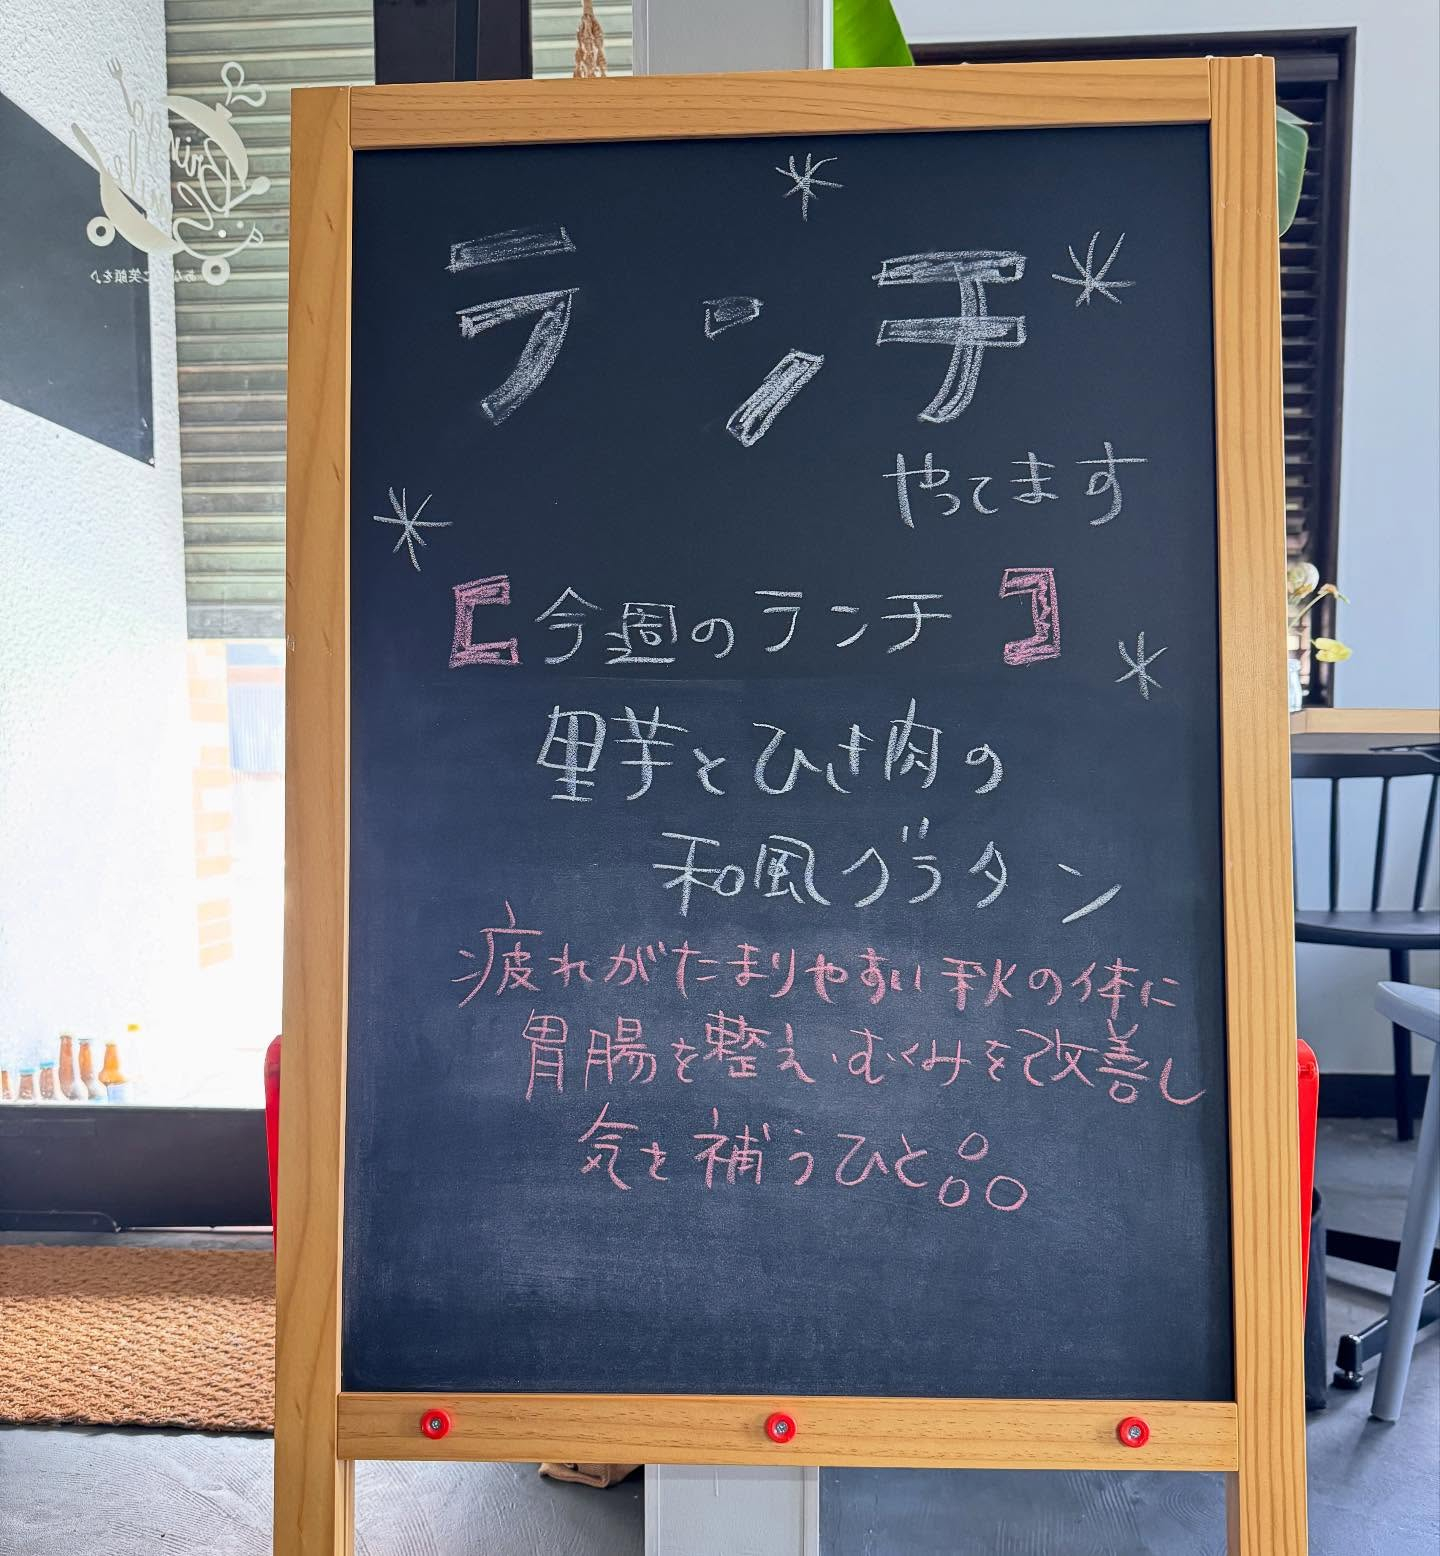 ランチ
やってます
【今週のランチ】
里芋とひき肉の
和風グラタン
疲れがたまりやすい秋の体に
胃腸を整え、むくみを改善し
気を補うひと品